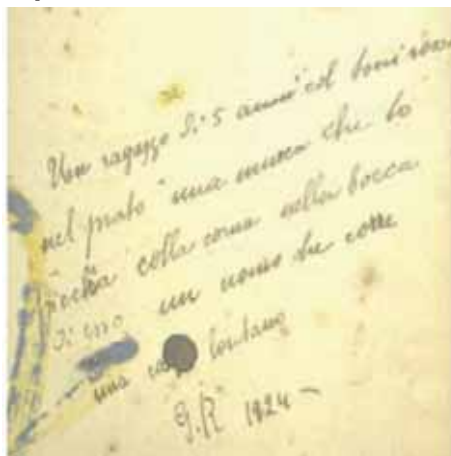 Un ragazzo di 5 anni col
nel prato una mucca che lo
colle corna nella bocca
di un uomo che corre
una lontano
G.R 1924 -